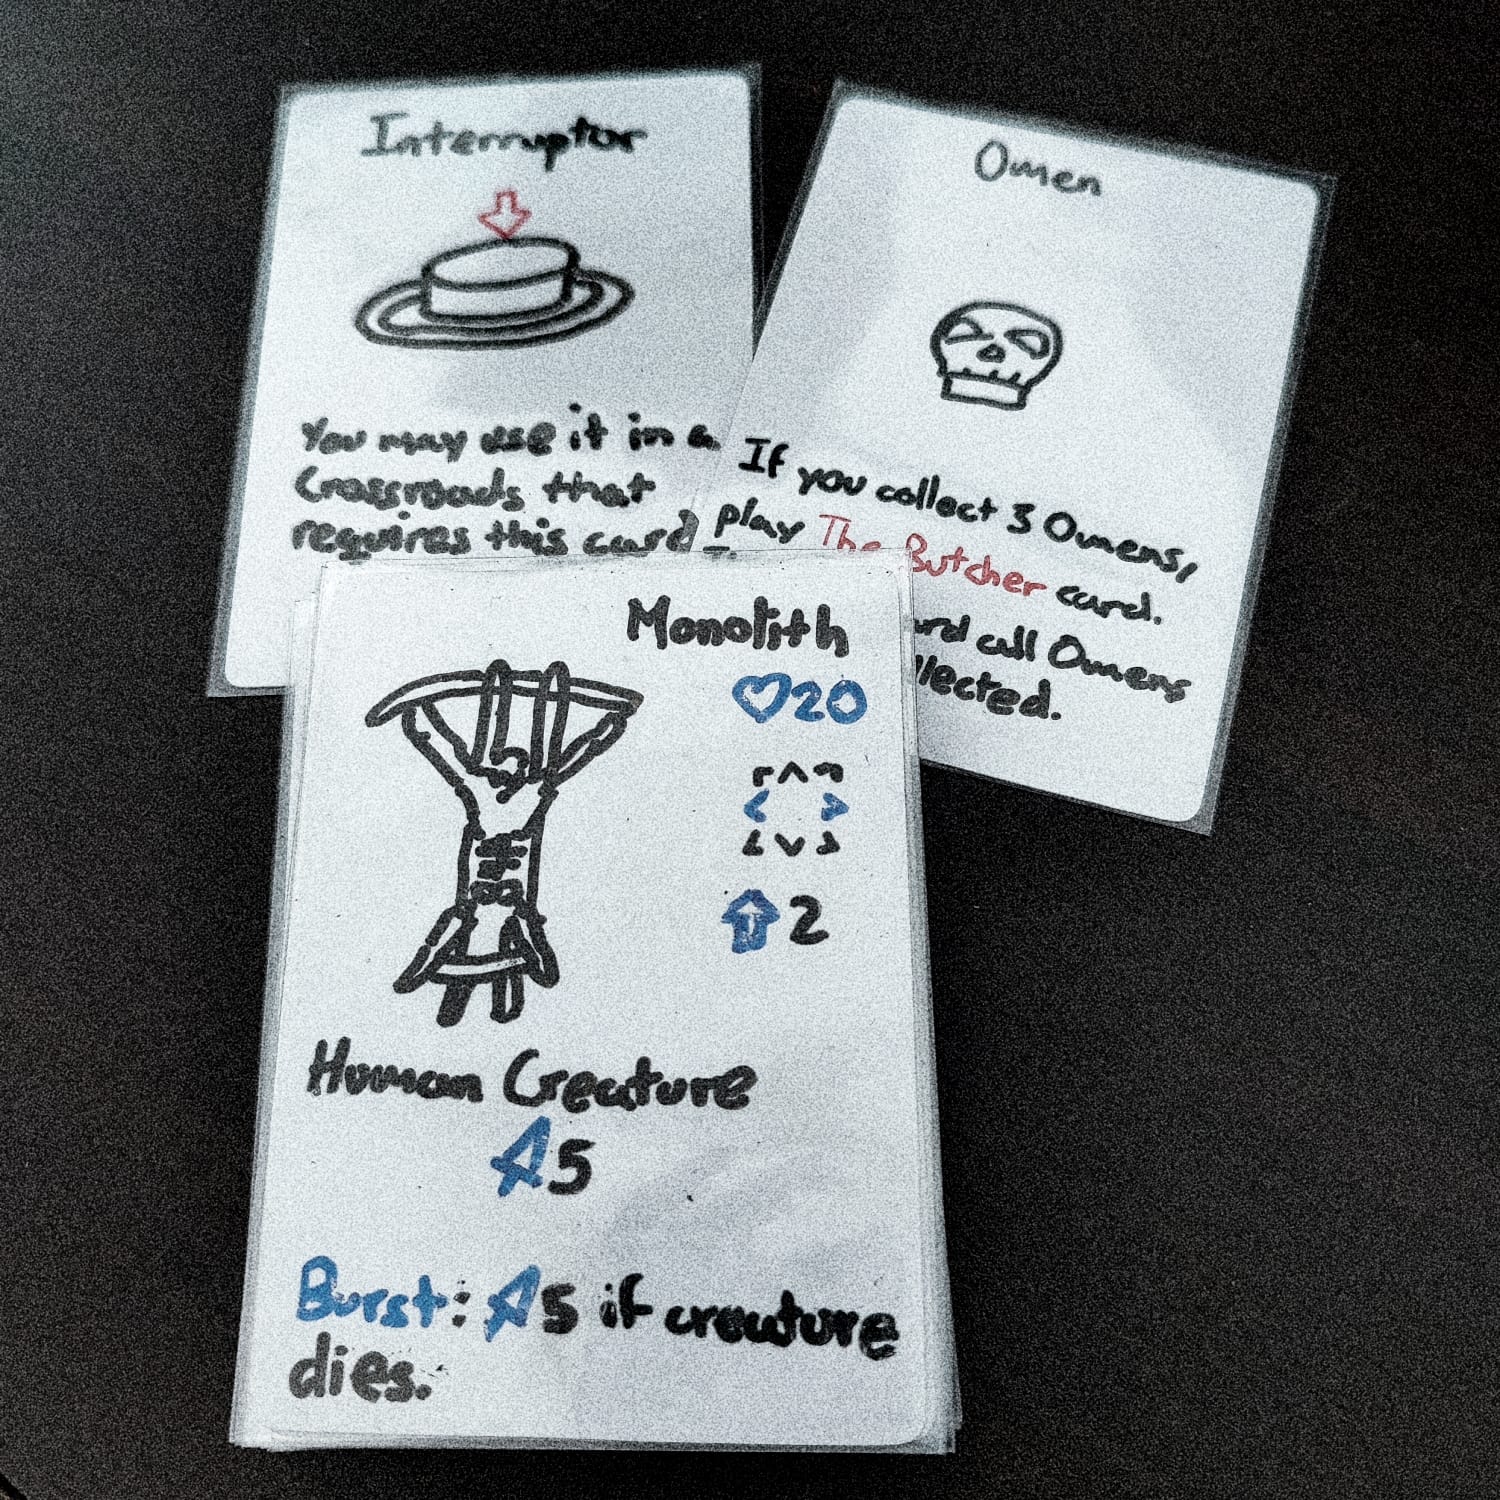 Interruptor
You may use it in a
Crossroads that
requires this card
Omen
If you collect 3 Omens,
play The Butcher card.
card call Omens
collected.
Monolith
20
2
Human Creature
5
Burst: 5 if creature
dies.